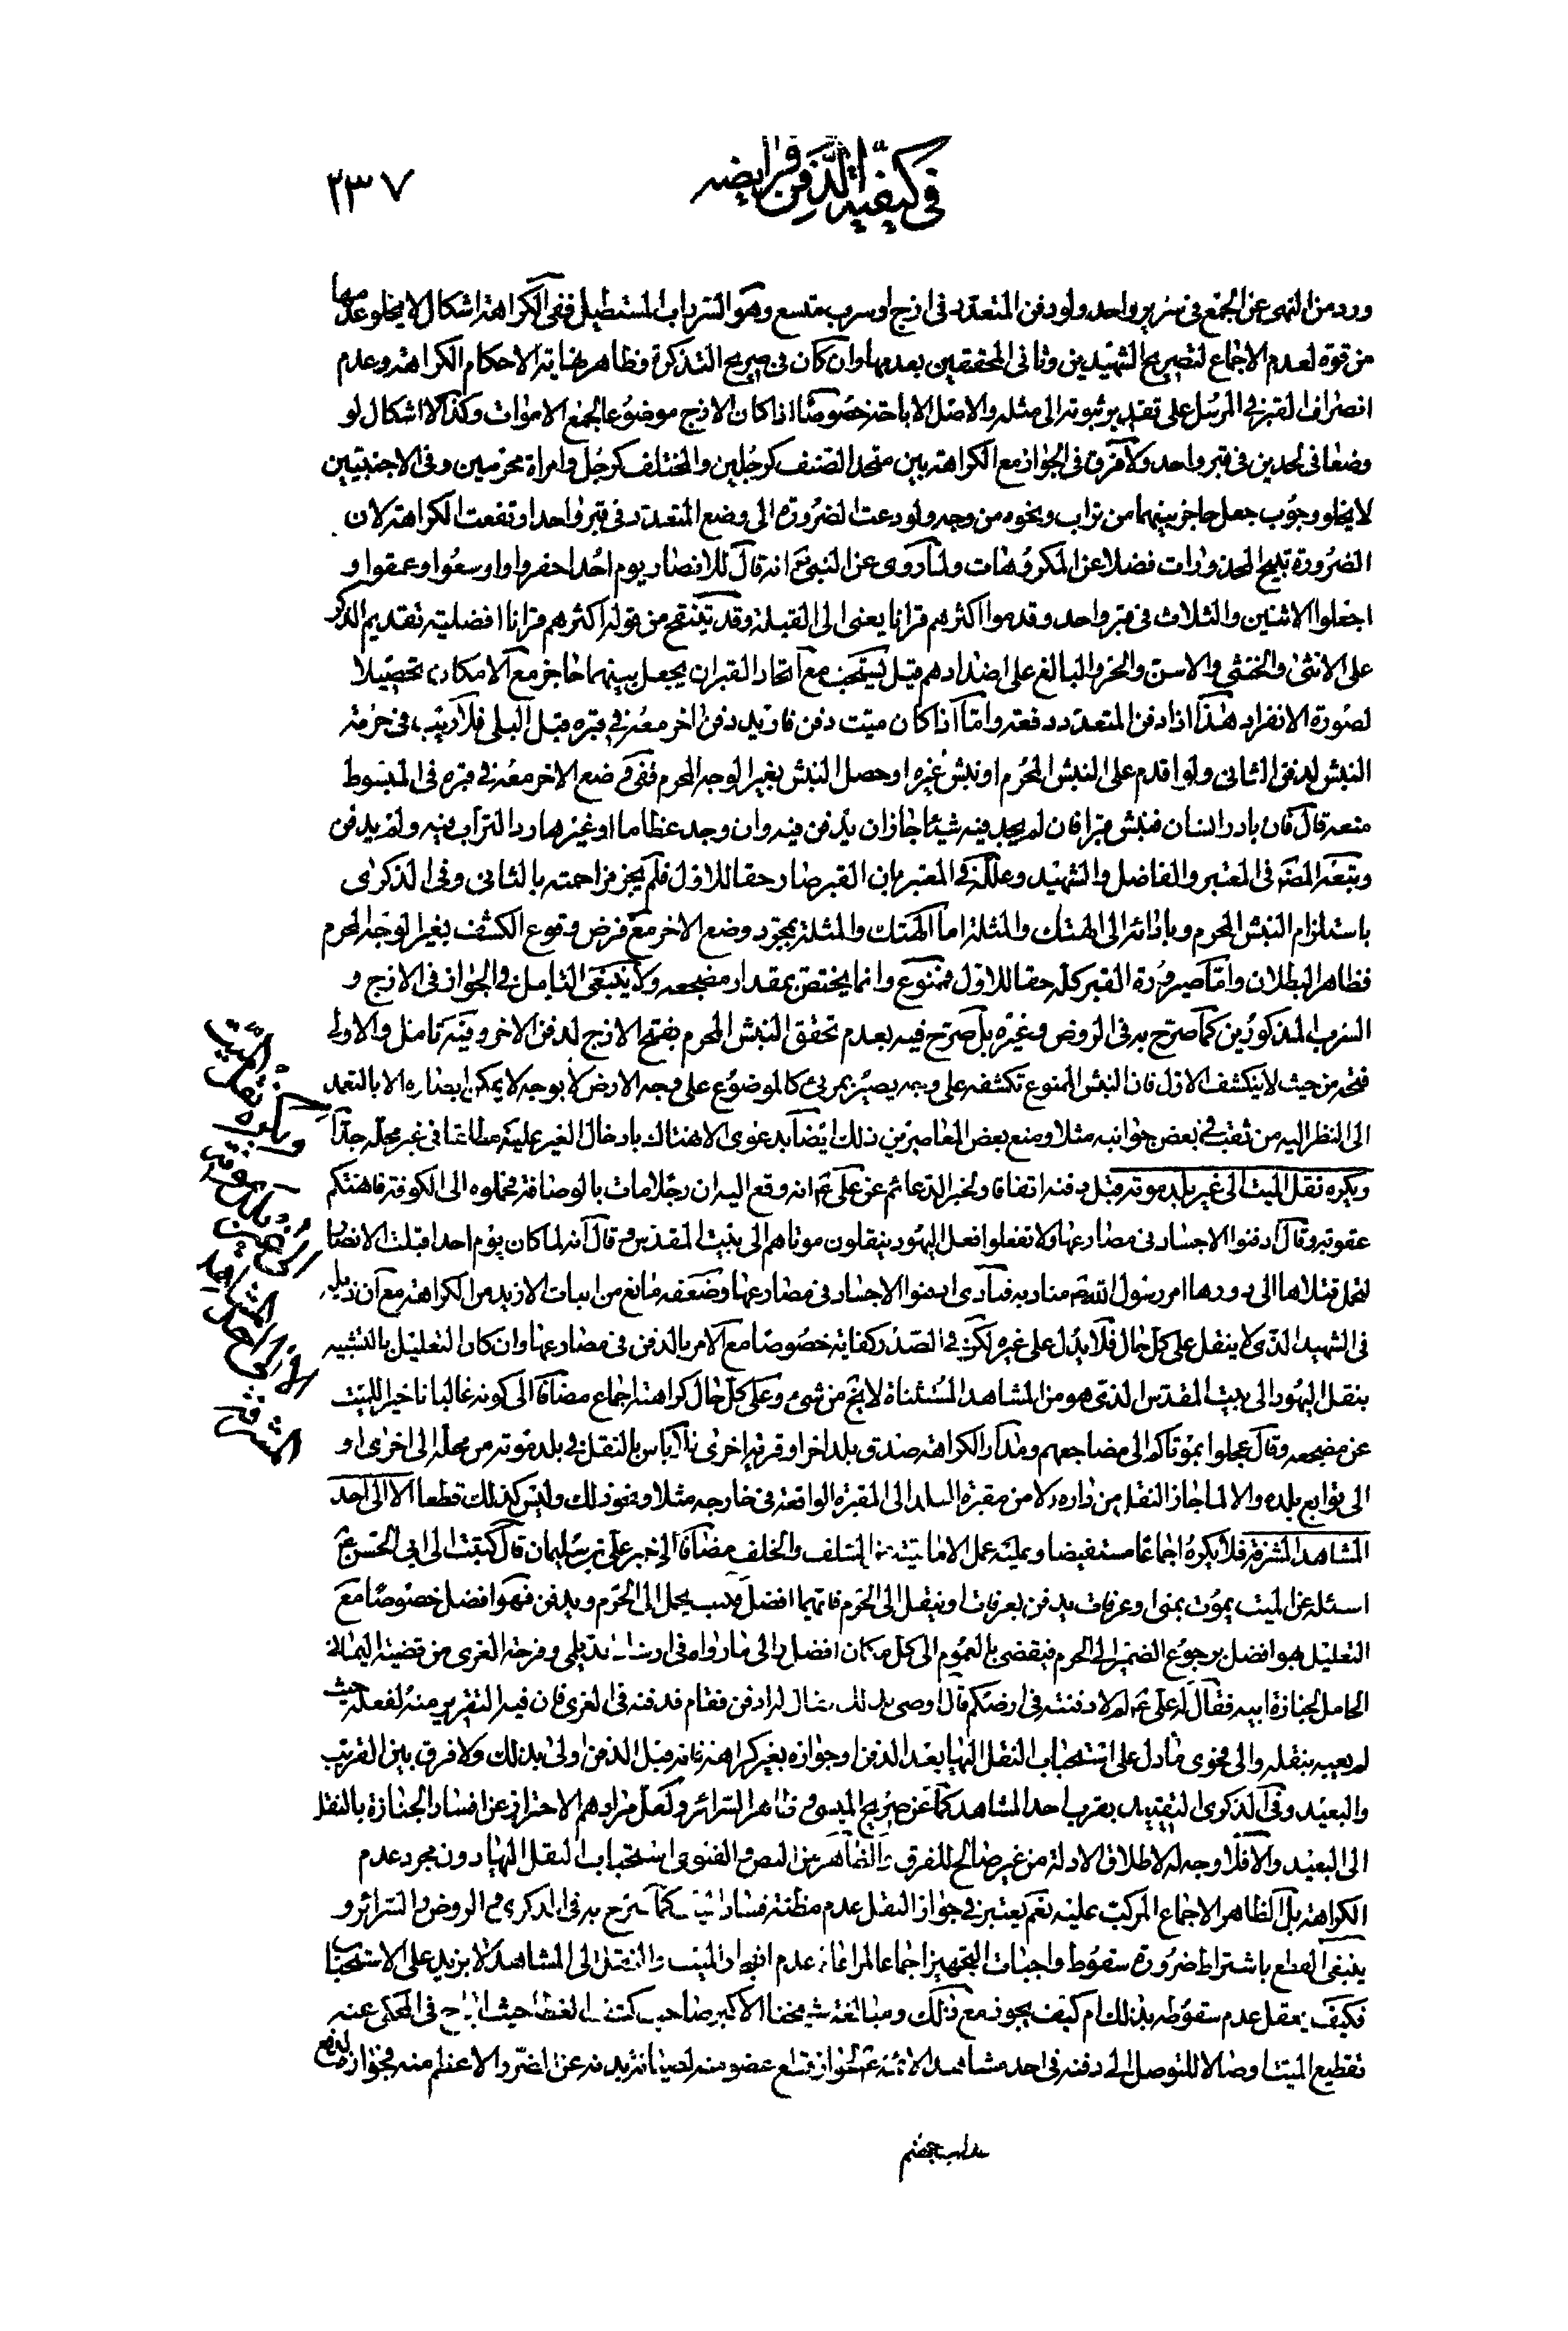 في كيفية الدفن وفرايضه
٢٣٧
ورد من النهى عن الجمع في سرير واحد ولو دفن المتعدد في ازج او سرب متسع وهو السرداب المستطيل ففي الكراهة اشكال لا يخلو عدمها
من قوة لعدم الاجماع لتصريح الشهيدين وثاني المحققين بعدمها وان كان في صريح التذكرة وظاهر نهاية الاحكام الكراهة وعدم
انصراف القبر في المرسل على تقدير ثبوته الى مثله والاصل الاباحة خصوصا اذا كان الازج موضوعا لجمع الاموات وكذا لا اشكال لو
وضعا في لحدين في قبر واحد ولا فرق في الجواز مع الكراهة بين متحد الصنف كرجلين والمختلف كرجل وامراة محرمين وفي الاجنبيين
لا يخلو وجوب جعل حاجز بينهما من تراب ونحوه من وجه ولو دعت الضرورة الى وضع المتعدد في قبر واحد ارتفعت الكراهة لان
الضرورة تبيح المحذورات فضلا عن المكروهات ولما روى عن النبي ص انه قال للانصار يوم احد احفروا واوسعوا وعمقوا و
اجعلوا الاثنين والثلاث في قبر واحد وقدموا اكثرهم قرانا يعنى الى القبلة وقد ينقح من قوله اكثرهم قرانا افضلية تقديم الذكر
على الانثى والخنثى والاسن والحر والبالغ على اضدادهم قيل يستحب مع اتحاد القبر ان يجعل بينهما حاجز مع الامكان تحصيلا
لصورة الانفراد هذا اذا دفن المتعدد دفعة واما اذا كان ميت دفن فاريد دفن اخر معه في قبره قبل البلى فلا ريب في حرمة
النبش لدفن الثاني ولو اقدم على النبش المحرم او نبش غيره او حصل النبش بغير الوجه المحرم ففي وضع الاخر معه في قبره في المبسوط
منعه قال فان بادر انسان فنبش قبرا فان لم يجد فيه شيئا جاز ان يدفن فيه وان وجد عظاما او غيرها رد التراب فيه ولم يدفن
وتبعه المصنف في المعتبر والفاضل والشهيد وعلله في المعتبر بان القبر صار حقا للاول فلم يجز مزاحمته بالثاني وفي الذكرى
باستلزام النبش المحرم وبادائه الى الهتك والمثلة اما الهتك والمثلة بمجرد وضع الاخر مع فرض وقوع الكشف بغير الوجه المحرم
فظاهر البطلان واما صيرورة القبر كله حقا للاول فممنوع وانما يختص بمقدار مضجعه ولا ينبغى التامل في الجواز في الازج و
السرب المذكورين كما صرح به في الروض وغيره بل صرح فيه بعدم تحقق النبش المحرم بفتح الازج لدفن الاخر وفيه تامل والاولى
فتحه من حيث لا ينكشف الاول فان النبش الممنوع تكشفه على وجه يصير بمرئ كالموضوع على وجه الارض لا بوجه لا يمكن ابصاره الا بالتعمد
الى النظر اليه من ثقب في بعض جوانبه مثلا ومنع بعض المعاصرين ذلك ايضا بدعوى الانهتاك بادخال الغير عليه مطلقا في غير محله جدا
ويكره نقل الميت الى غير بلد موته قبل دفنه اتفاقا ولخبر الدعائم عن على ع انه رفع اليه ان رجلا مات بالرصافة فحملوه الى الكوفة فانهكم
عقوبة وقال ادفنوا الاجساد في مصارعها ولا تفعلوا فعل اليهود ينقلون موتاهم الى بيت المقدس وقال انه لما كان يوم احد اقبلت الانصار
لتحمل قتلاها الى دورها امر رسول الله ص مناديه فنادى ادفنوا الاجساد في مصارعها وضعفه مانع من اثبات الازيد من الكراهة مع ان ذيله
في الشهيد الذى لا ينقل على كل حال فلا يدل على غيره لكن في الصدر كفاية خصوصا مع الامر بالدفن في مصارعها وان كان التعليل بالتشبيه
بنقل اليهود الى بيت المقدس الذى هو من المشاهد المستثناة لا يخ من شىء وعلى كل حال كراهته اجماع مضافا الى كونه غالبا تاخيرا للميت
عن مضجعه وقال عجلوا بموتاكم الى مضاجعهم ومدار الكراهة صدق بلد اخر او قرية اخرى فلا باس بالنقل في بلد موته من محلة الى اخرى او
الى توابع بلده والا لما جاز النقل من داره الا من مقبرة البلد الى المقبرة الواقعة في خارجه مثلا ونحو ذلك وليس كذلك قطعا الا الى احد
المشاهد المشرفة فلا يكره اجماعا مستفيضا وعليه عمل الامامية من السلف والخلف مضافا الى خبر على بن سليمان قال كتبت الى ابي الحسن ع
اسئله عن الميت يموت بمنى او عرفات يدفن بعرفات او ينقل الى الحرم فايهما افضل فكتب يحمل الى الحرم ويدفن فهو افضل خصوصا مع
التعليل بهو افضل برجوع الضمير الى الحرم فيقضى بالعموم الى كل مكان افضل والى ما رواه في ارشاد الديلمي وفرحة الغرى من قضية اليماني
الحامل لجنازة ابيه فقال له على ع لم لا دفنته في ارضكم قال اوصى بذلك فقال له ادفن فقام فدفنه في الغرى فان فيه التقرير منه لفعله حيث
لم يعيبه بنقله والى فحوى ما دل على استحباب النقل اليها بعد الدفن او جوازه بغير كراهة فانه قبل الدفن اولى بذلك ولا فرق بين القريب
والبعيد وفي الذكرى التقييد بقرب احد المشاهد كما عن صريح الميسى وظاهر السرائر ولعل مرادهم الاحتراز عن افساد الجنازة بالنقل
الى البعيد والا فلا وجه له لاطلاق الادلة من غير صالح للفرق والظاهر من النص والفتوى استحباب النقل اليها دون مجرد عدم
الكراهة بل الظاهر الاجماع المركب عليه نعم يعتبر في جواز النقل عدم مظنة فساد الميت كما صرح به في الذكرى والروض والسرائر و
ينبغى القطع باشتراط ضرورة سقوط واجبات التجهيز اجماعا لمراعاة عدم افساد الميت والنقل الى المشاهد لا يزيد على الاستحباب
فكيف يعقل عدم سقوطه بذلك ام كيف يجوز مع ذلك ومبالغة شيخنا الاكبر صاحب كشف الغطا حيث اباح في المحكى عنه
تقطيع الميت اوصالا للتوصل الى دفنه في احد مشاهد الائمة ع لجواز قطع عضو منه لصيانة بدنه عن الضرر الاعظم منه فجوازه لدفع
ويكره نقل الميت
الى غير بلد موته
الا الى احد المشاهد
المشرفة